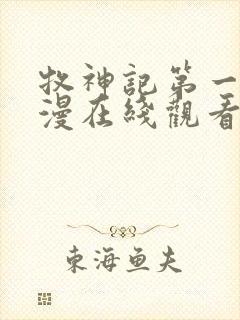 牧神記第一
漫在綫觀看
東海鱼夫